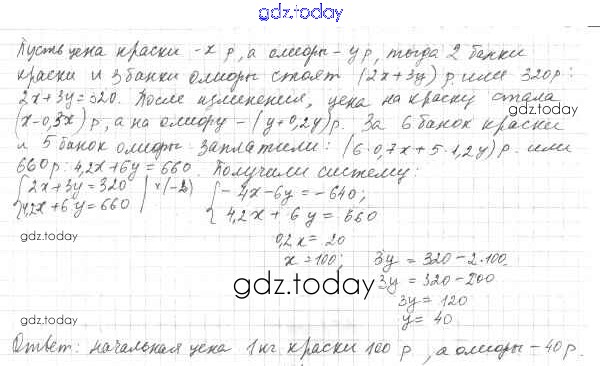 gdz.today
Пусть цена краски - х р, а олифы - у р, тогда 2 банки
краски и 3 банки олифы стоят (2х+3у) р или 320р:
2х+3у=320. После изменения, цена на краску стала
gdz.today
(х-0,3х) р, а на олифу - (у+0,2у)р. За 6 банок краски
и 5 банок олифы заплатили: (6·0,7х+5·1,2у) р или
660р: 4,2х+6у=660. Получили систему:
{2х+3у=320 |×(-2) {-4х-6у=-640;
4,2х+6у=660 4,2х+6у=660
gdz.today
0,2х=20
х=100; 3у=320-2·100
gdz.today
3у=320-200
3у=120
gdz.today
у=40
Ответ: начальная цена 1кг краски 100 р, а олифы - 40 р.